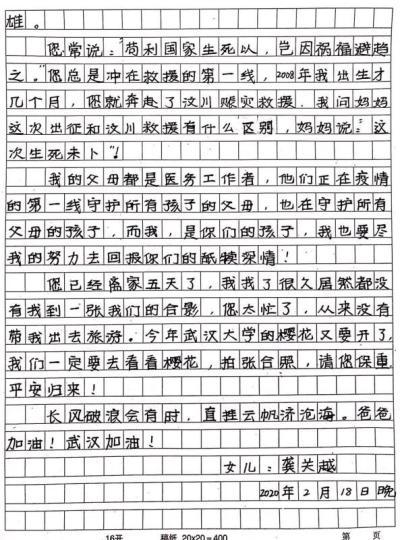 雄。
您常说："苟利国家生死以，岂因祸福避趋
之。"您总是冲在救援的第一线，2008年我出生才
几个月，您就奔赴了汶川赈灾救援。我问妈妈
这次出征和汶川救援有什么区别，妈妈说："这
次生死未卜"！
我的父母都是医务工作者，他们正在疫情
的第一线守护所有孩子的父母，也在守护所有
父母的孩子，而我，是你们的孩子，我也要尽
我的努力去回报你们的舐犊深情！
您已经离家五天了，我找了很久居然都没
有找到一张我们的合影，您太忙了，从来没有
带我出去旅游。今年武汉大学的樱花又要开了，
我们一定要去看看樱花，拍张合照，请您保重，
平安归来！
长风破浪会有时，直挂云帆济沧海。爸爸
加油！武汉加油！
女儿：龚关越
2020年2月18日晚
16开 稿纸 20×20=400 第 页